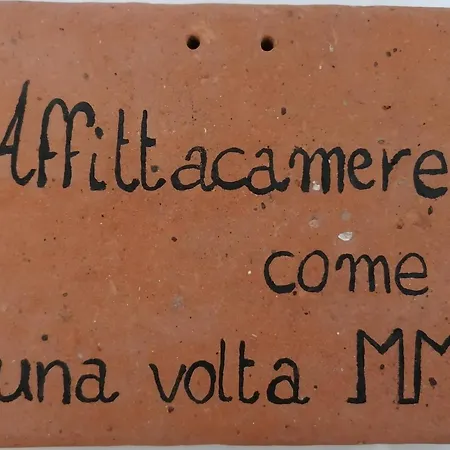 Affittacamere
come
una volta MM